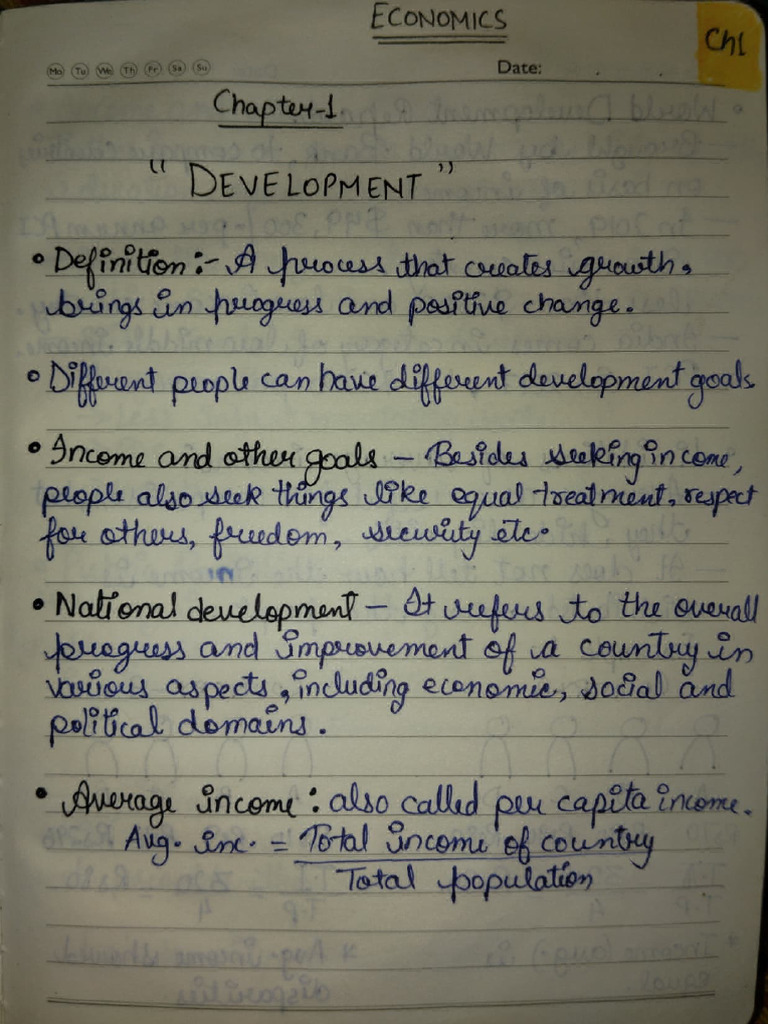 ECONOMICS
Ch1
Mo Tu We Th Fr Sa Su Date:
Chapter-1
"DEVELOPMENT"
• Definition :- A process that creates growth,
brings in progress and positive change.
• Different people can have different development goals.
• Income and other goals - Besides seeking income,
people also seek things like equal treatment, respect
for others, freedom, security etc.
• National development - It refers to the overall
progress and improvement of a country in
various aspects, including economic, social and
political domains.
• Average income : also called per capita income.
Avg. inc. = Total income of country
Total population